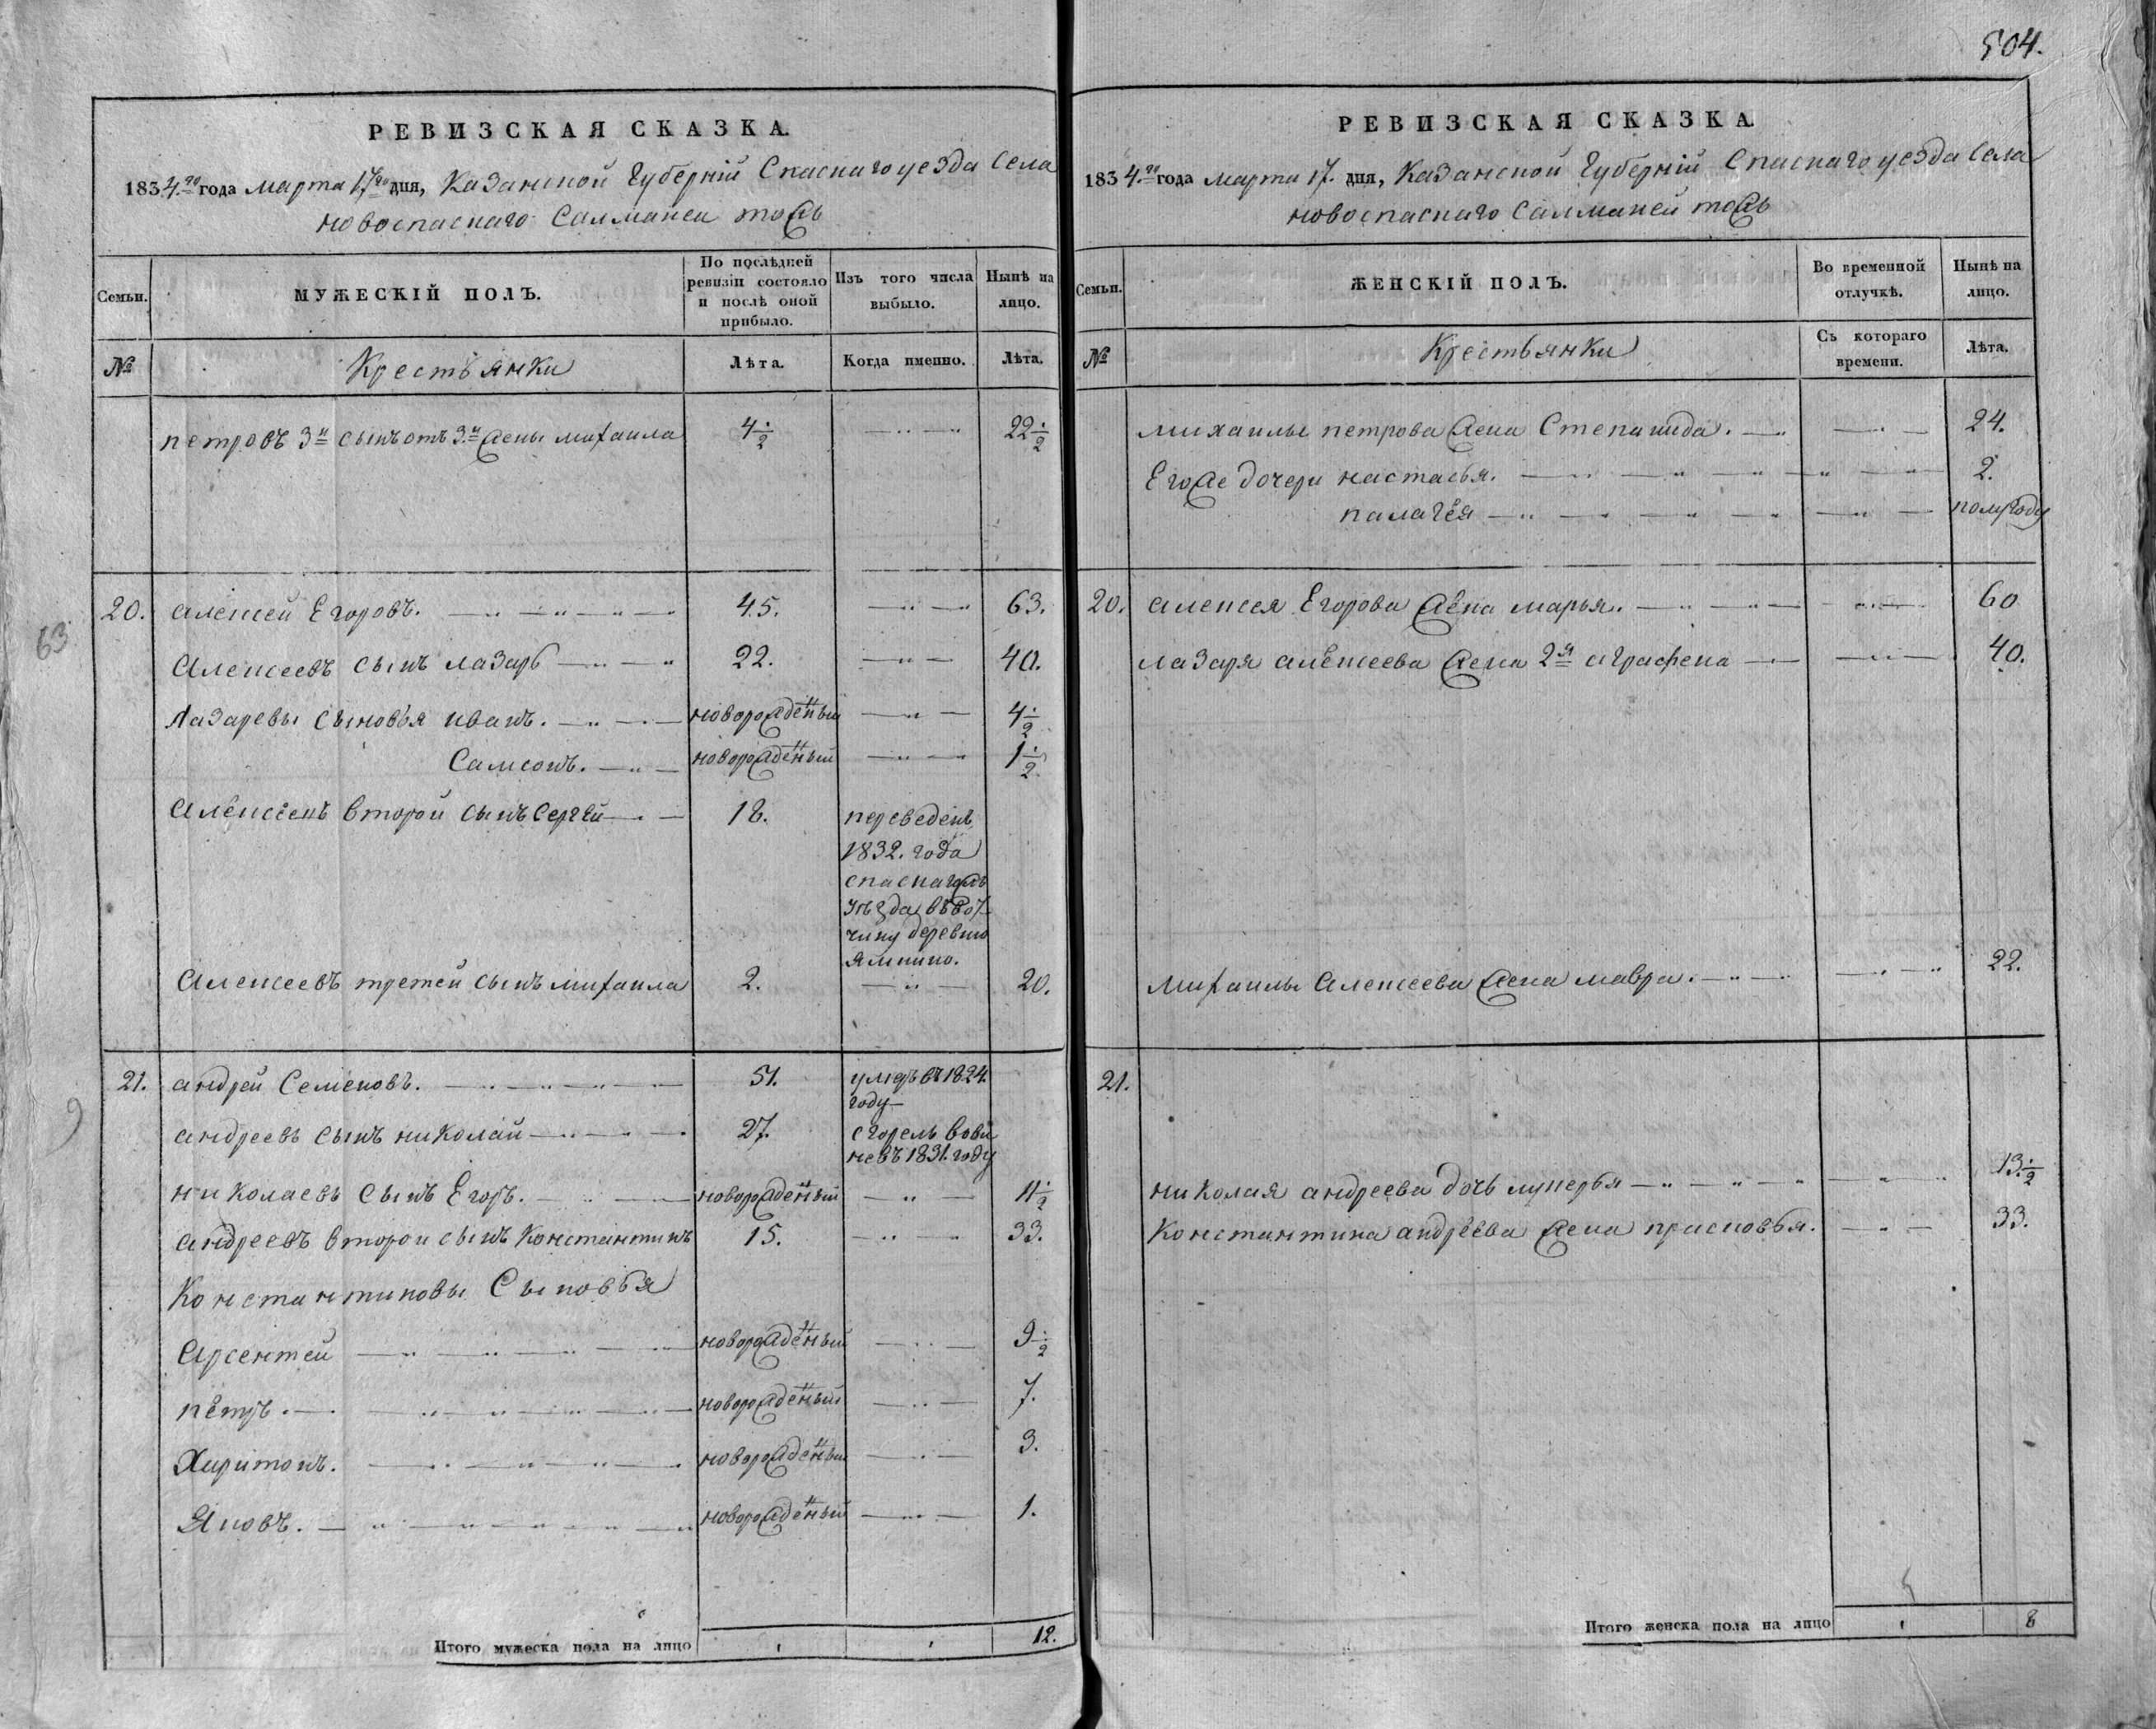 504.
РЕВИЗСКАЯ СКАЗКА.
1834.го года марта 17го дня, Казанской Губерній Спаскаго уезда Села
новоспаскаго Салманеи тожъ
Семьи. МУЖЕСКІЙ ПОЛЪ. По послѣдней ревизіи состояло и послѣ оной прибыло. Изъ того числа выбыло. Нынѣ на лицо.
№ Крестьянки Лѣта. Когда именно. Лѣта.
петровъ 3й сынъ отъ 3й жены михаила 4½ 22½
20. алексей Егоровъ. 45. 63.
63
Алексеевъ сынъ лазарь 22. 40.
Лазаревы сыновья иванъ. новорожденный 4½
Самсонъ. новорожденный 1½
Алексеевъ второй сынъ Сергей 18. переведенъ
1832. года
спаскагожъ
уѣзда въвот
чину деревню
ямкино.
Алексеевъ третей сынъ михаила 2. 20.
21. андрей Семеновъ. 51. умеръ въ 1824.
году
9
андреевъ сынъ николай 27. сгорелъ вови
невъ 1831. году
николаевъ сынъ Егоръ. новорожденный 11½
андреевъ второи сынъ Константинъ 15. 33.
Константиновы Сыновья
Арсентей новорожденный 9½
пётръ. новорожденный 7.
Харитонъ. новорожденный 3.
Яковъ. новорожденный 1.
Итого мужеска пола на лицо 12.
РЕВИЗСКАЯ СКАЗКА.
1834.го года марта 17. дня, Казанской Губерній Спаскаго уезда Села
новоспаскаго Салманей тожъ
Семьи. ЖЕНСКІЙ ПОЛЪ. Во временной отлучкѣ. Нынѣ на лицо.
№ Крестьянки Съ котораго времени. Лѣта.
михаилы петрова жена Степанида. 24.
Егоже дочери настасья. 2.
палагея полугоду
20. алексея Егорова жена марья. 60
лазаря алексеева жена 2я аграфена 40.
михаилы Алексеева жена мавра. 22.
21.
николая андреева дочь лукерья 13½
Константина андреева жена прасковья. 33.
Итого женска пола на лицо 8